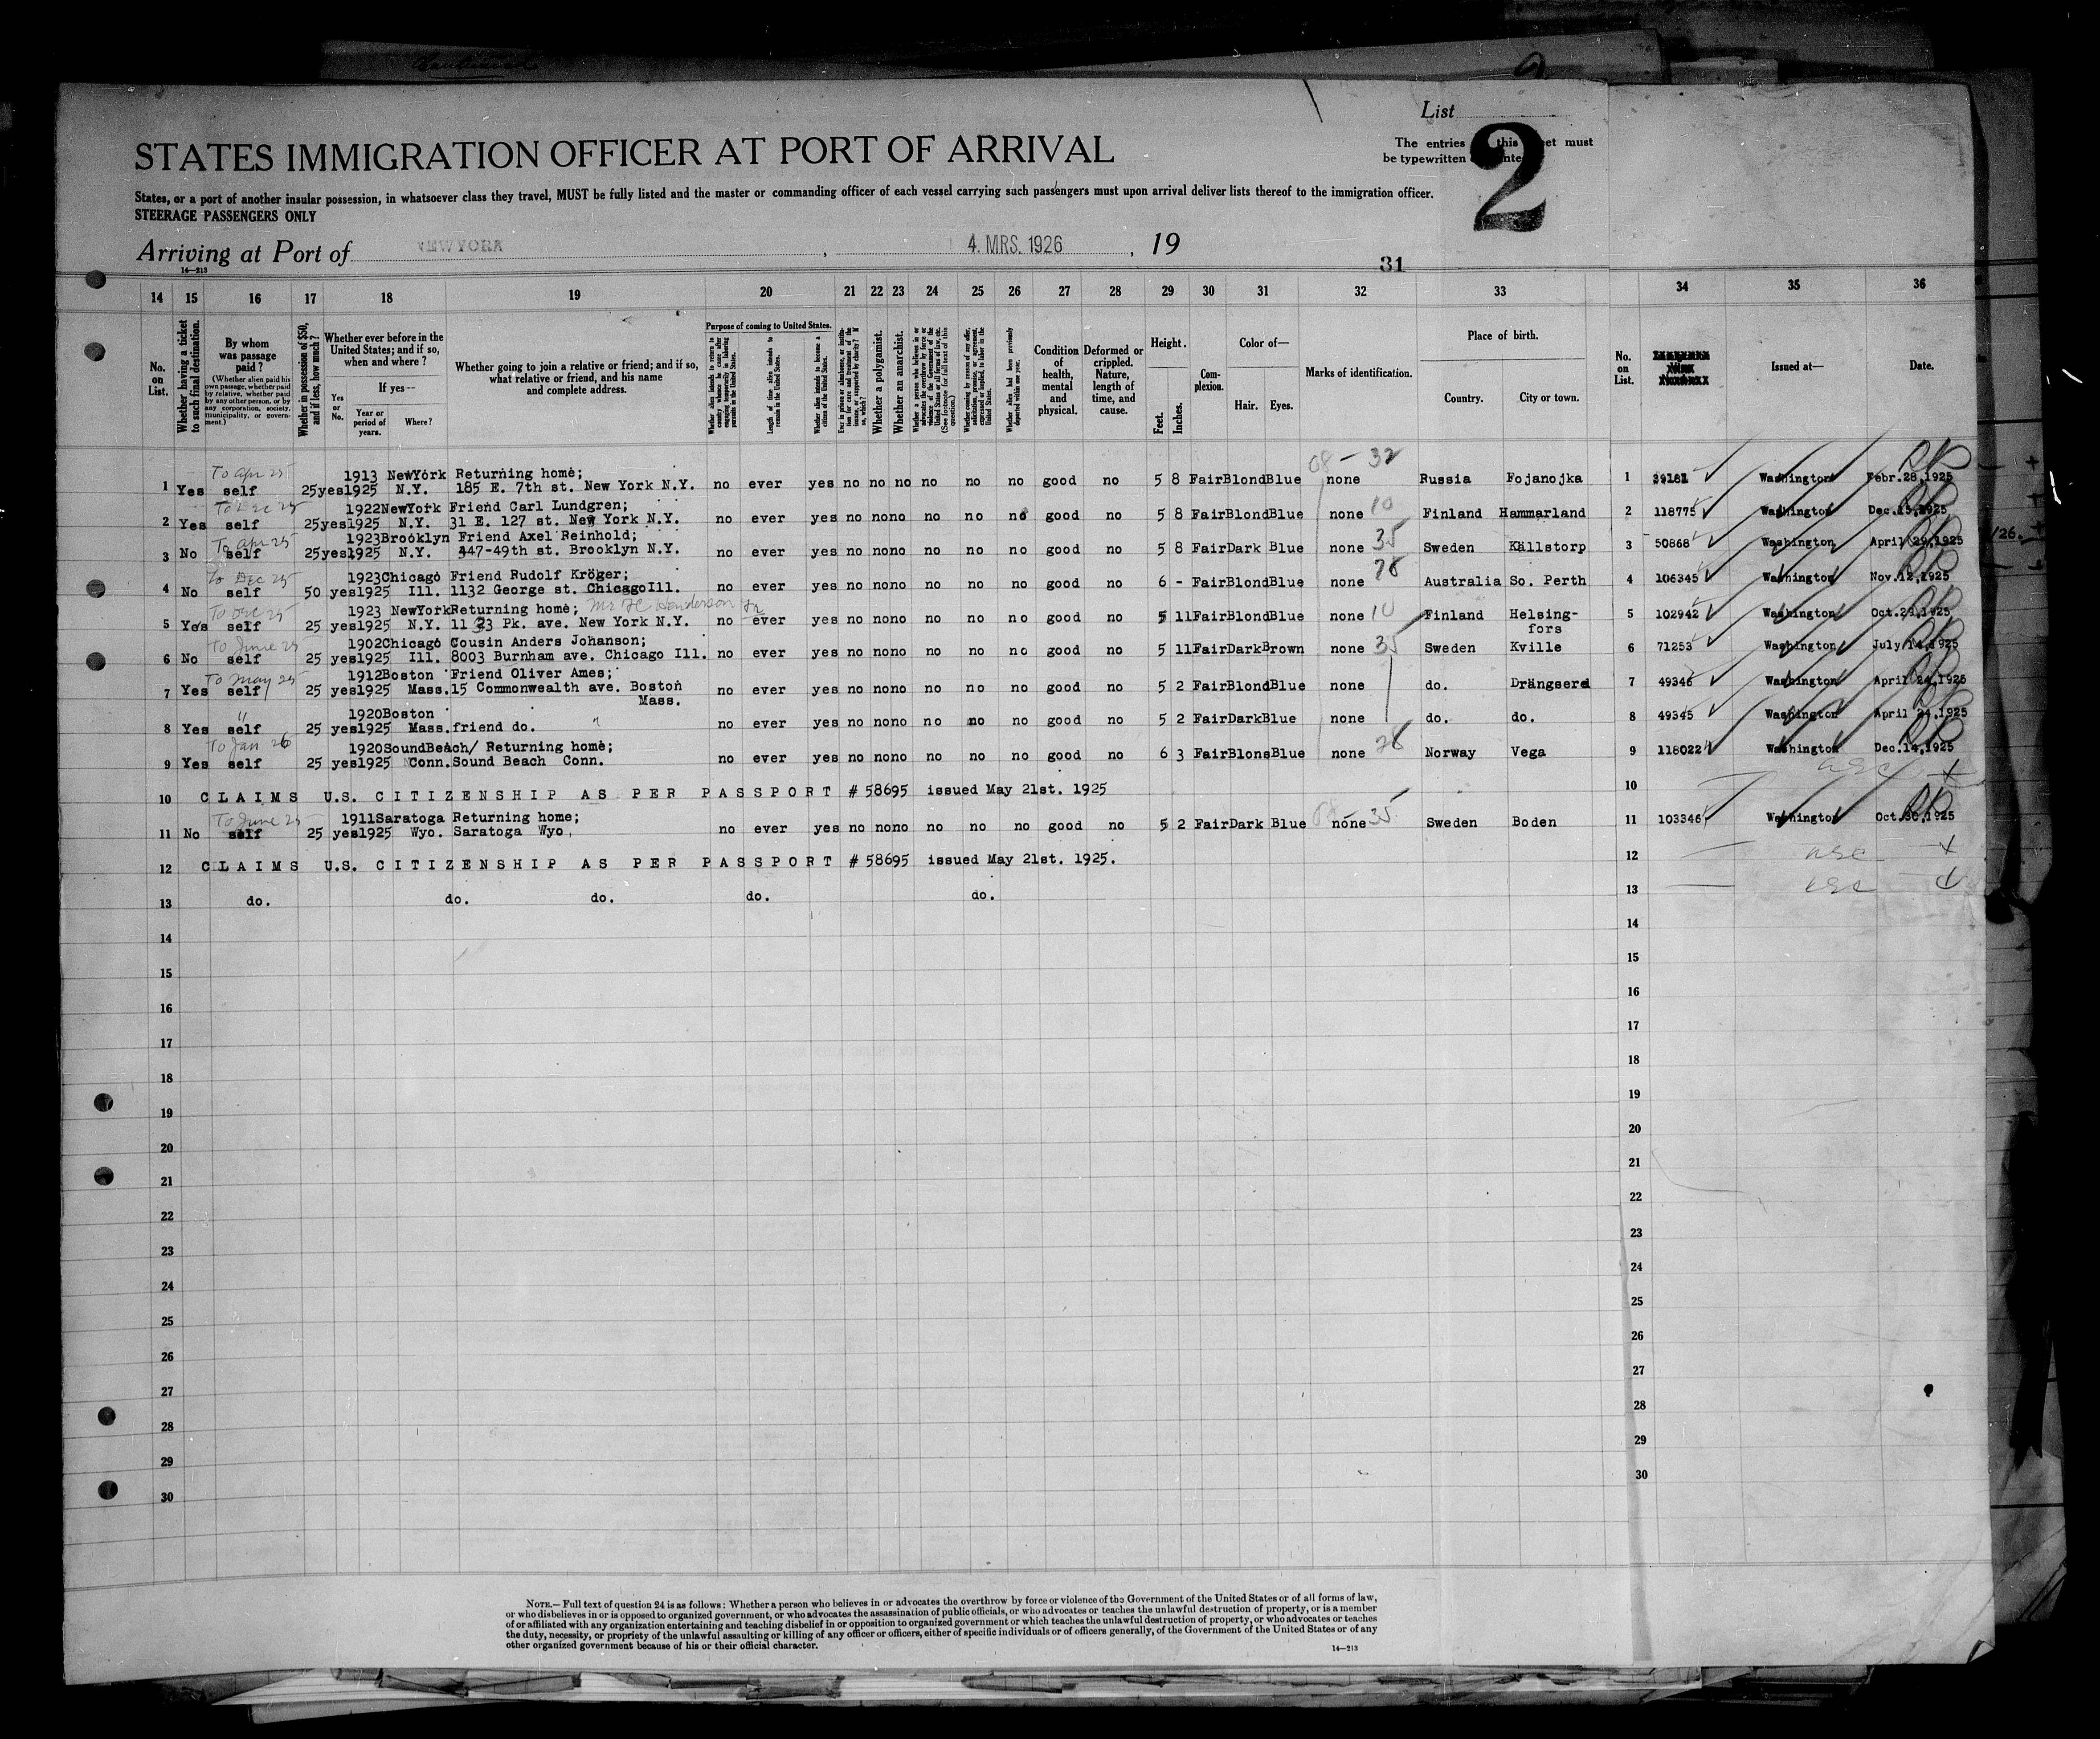 List
2
The entries this must
be typewritten
STATES IMMIGRATION OFFICER AT PORT OF ARRIVAL
States, or a port of another insular possession, in whatsoever class they travel, MUST be fully listed and the master or commanding officer of each vessel carrying such passengers must upon arrival deliver lists thereof to the immigration officer.
STEERAGE PASSENGERS ONLY
Arriving at Port of NEW YORK , 4. MRS. 1926 , 19
14—213
31
14 15 16 17 18 19 20 21 22 23 24 25 26 27 28 29 30 31 32 33 34 35 36
No. on List.
Whether having a ticket to such final destination.
By whom was passage paid?
(Whether alien paid his own passage, whether paid by relative, whether paid by any other person, or by any corporation, society, municipality, or government.)
Whether in possession of $50, and if less, how much?
Whether ever before in the United States; and if so, when and where?
If yes—
Yes or No.
Year or period of years.
Where?
Whether going to join a relative or friend; and if so, what relative or friend, and his name and complete address.
Purpose of coming to United States.
Length of time alien intends to remain in the United States.
Whether alien intends to become a citizen of the United States.
Whether a polygamist.
Whether an anarchist.
Condition of health, mental and physical.
Deformed or crippled. Nature, length of time, and cause.
Height.
Feet.
Inches.
Complexion.
Color of—
Hair.
Eyes.
Marks of identification.
Place of birth.
Country.
City or town.
No. on List.
Issued at—
Date.
08 - 32
To Apr 25 1913 NewYork Returning home;
1 Yes self 25yes1925 N.Y. 185 E. 7th st. New York N.Y. no ever yes no no no no no no good no 5 8 FairBlondBlue none Russia Fojanojka 1 39181 Washington Febr.28,1925
To Dec 25 1922NewYork Friend Carl Lundgren;
2 Yes self 25yes1925 N.Y. 31 E. 127 st. New York N.Y. no ever yes no nono no no no good no 5 8 FairBlondBlue none 10 Finland Hammarland 2 118775 Washington Dec.15,1925
To Apr 25 1923Brooklyn Friend Axel Reinhold;
3 No self 25yes1925 N.Y. 447-49th st. Brooklyn N.Y. no ever yes no nono no no no good no 5 8 FairDark Blue none 35 Sweden Källstorp 3 50868 Washington April 29,1925
To Dec 25 1923Chicago Friend Rudolf Kröger;
4 No self 50 yes1925 Ill. 1132 George st. ChicagoIll. no ever yes no nono no no no good no 6 - FairBlondBlue none 28 Australia So. Perth 4 106345 Washington Nov.12,1925
To Dec 25 1923 NewYorkReturning home; Mr HC Henderson Jr
5 Yes self 25 yes1925 N.Y. 11 23 Pk. ave. New York N.Y. no ever yes no nono no no no good no 5 11FairBlondBlue none 10 Finland Helsing-fors 5 102942 Washington Oct.29,1925
To June 25 1902Chicago Cousin Anders Johanson;
6 No self 25 yes1925 Ill. 8003 Burnham ave. Chicago Ill. no ever yes no nono no no no good no 5 11FairDarkBrown none 35 Sweden Kville 6 71253 Washington July 14,1925
To May 25 1912Boston Friend Oliver Ames;
7 Yes self 25 yes1925 Mass.15 Commonwealth ave. Boston Mass. no ever yes no nono no no no good no 5 2 FairBlondBlue none do. Drängsered 7 49346 Washington April 24,1925
" 1920Boston
8 Yes self 25 yes1925 Mass.friend do. " no ever yes no nono no no no good no 5 2 FairDarkBlue none do. do. 8 49345 Washington April 24,1925
To Jan 26 1920SoundBeach/ Returning home;
9 Yes self 25 yes1925 Conn.Sound Beach Conn. no ever yes no nono no no no good no 6 3 FairBlonsBlue none 28 Norway Vega 9 118022 Washington Dec.14,1925
10 CLAIMS U.S. CITIZENSHIP AS PER PASSPORT # 58695 issued May 21st. 1925 10
To June 25 1911Saratoga Returning home;
11 No self 25 yes1925 Wyo. Saratoga Wyo, no ever yes no nono no no no good no 5 2 FairDark Blue none 35 Sweden Boden 11 103346 Washington Oct.30,1925
12 CLAIMS U.S. CITIZENSHIP AS PER PASSPORT # 58695 issued May 21st. 1925. 12
13 do. do. do. do. do. 13
14 14
15 15
16 16
17 17
18 18
19 19
20 20
21 21
22 22
23 23
24 24
25 25
26 26
27 27
28 28
29 29
30 30
NOTE.—Full text of question 24 is as follows: Whether a person who believes in or advocates the overthrow by force or violence of the Government of the United States or of all forms of law,
or who disbelieves in or is opposed to organized government, or who advocates the assassination of public officials, or who advocates or teaches the unlawful destruction of property, or is a member
of or affiliated with any organization entertaining and teaching disbelief in or opposition to organized government or which teaches the unlawful destruction of property, or who advocates or teaches
the duty, necessity, or propriety of the unlawful assaulting or killing of any officer or officers, either of specific individuals or of officers generally, of the Government of the United States or of any
other organized government because of his or their official character.
14—213